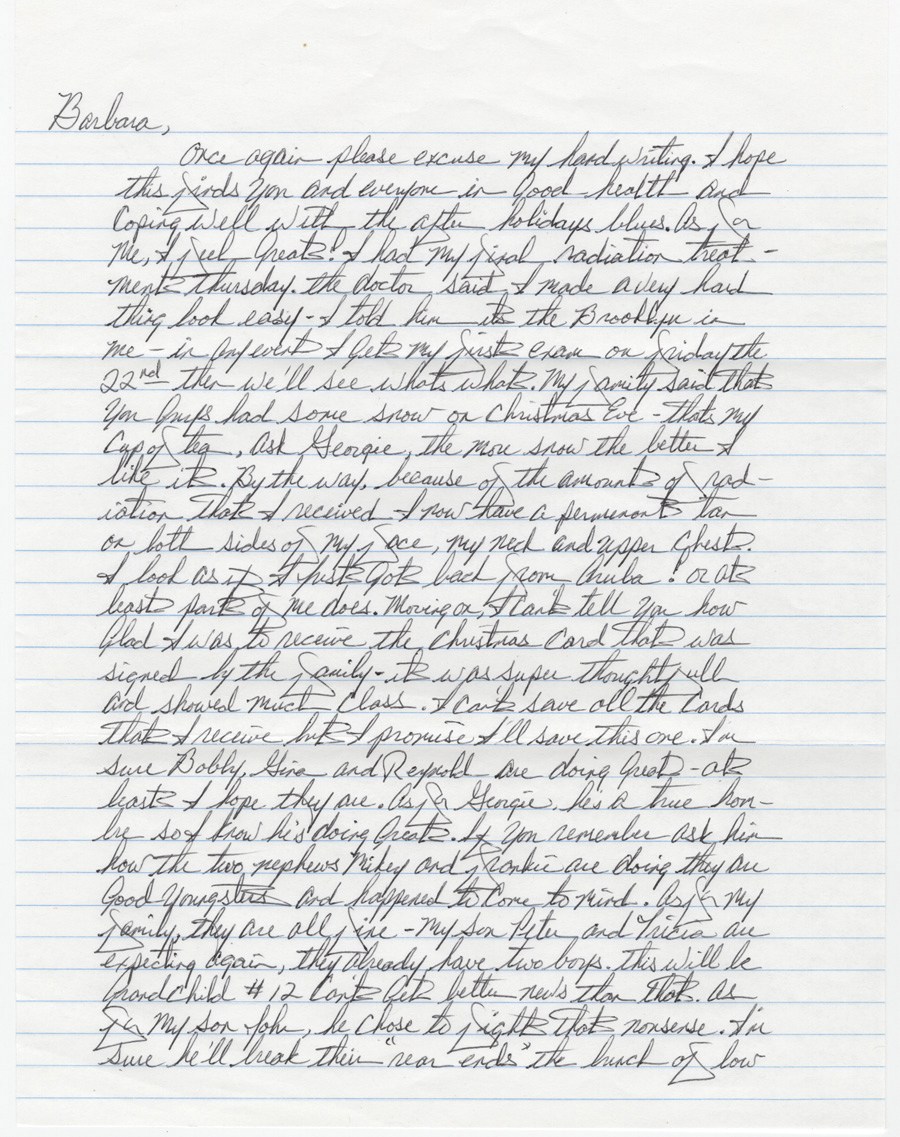 Barbara,
Once again please excuse my handwriting. I hope
this finds you and everyone in good health and
coping well with the after holidays blues. As for
me, I feel great! I had my final radiation treat-
ment Thursday. the doctor said I made a very hard
thing look easy - I told him its the Brooklyn in
me - in any event I get my first exam on friday the
22nd then we'll see whats what. My family said that
you guys had some snow on Christmas Eve - thats my
cup of tea, ask Georgie, the more snow the better I
like it. By the way, because of the amount of rad-
iation that I received I now have a permenant tan
on both sides of my face, my neck and upper chest.
I look as if I just got back from Aruba! or at
least part of me does. Moving on, I can't tell you how
glad I was to receive the Christmas card that was
signed by the family - it was super thoughtfull
and showed much class. I can't save all the cards
that I receive but I promise I'll save this one. I'm
sure Bobby, Gina and Reynold are doing great - at
least I hope they are. As for Georgie, he's a true hom-
bre so I know he's doing great. If you remember ask him
how the two nephews Mikey and frankie are doing, they are
good youngsters and happened to come to mind. As for my
family, they are all fine - My son Peter and Tricia are
expecting again, they already have two boys. this will be
grandchild # 12 can't get better news than that. As
for my son John, he chose to fight that nonsense. I'm
sure he'll break their "rear ends" the bunch of low